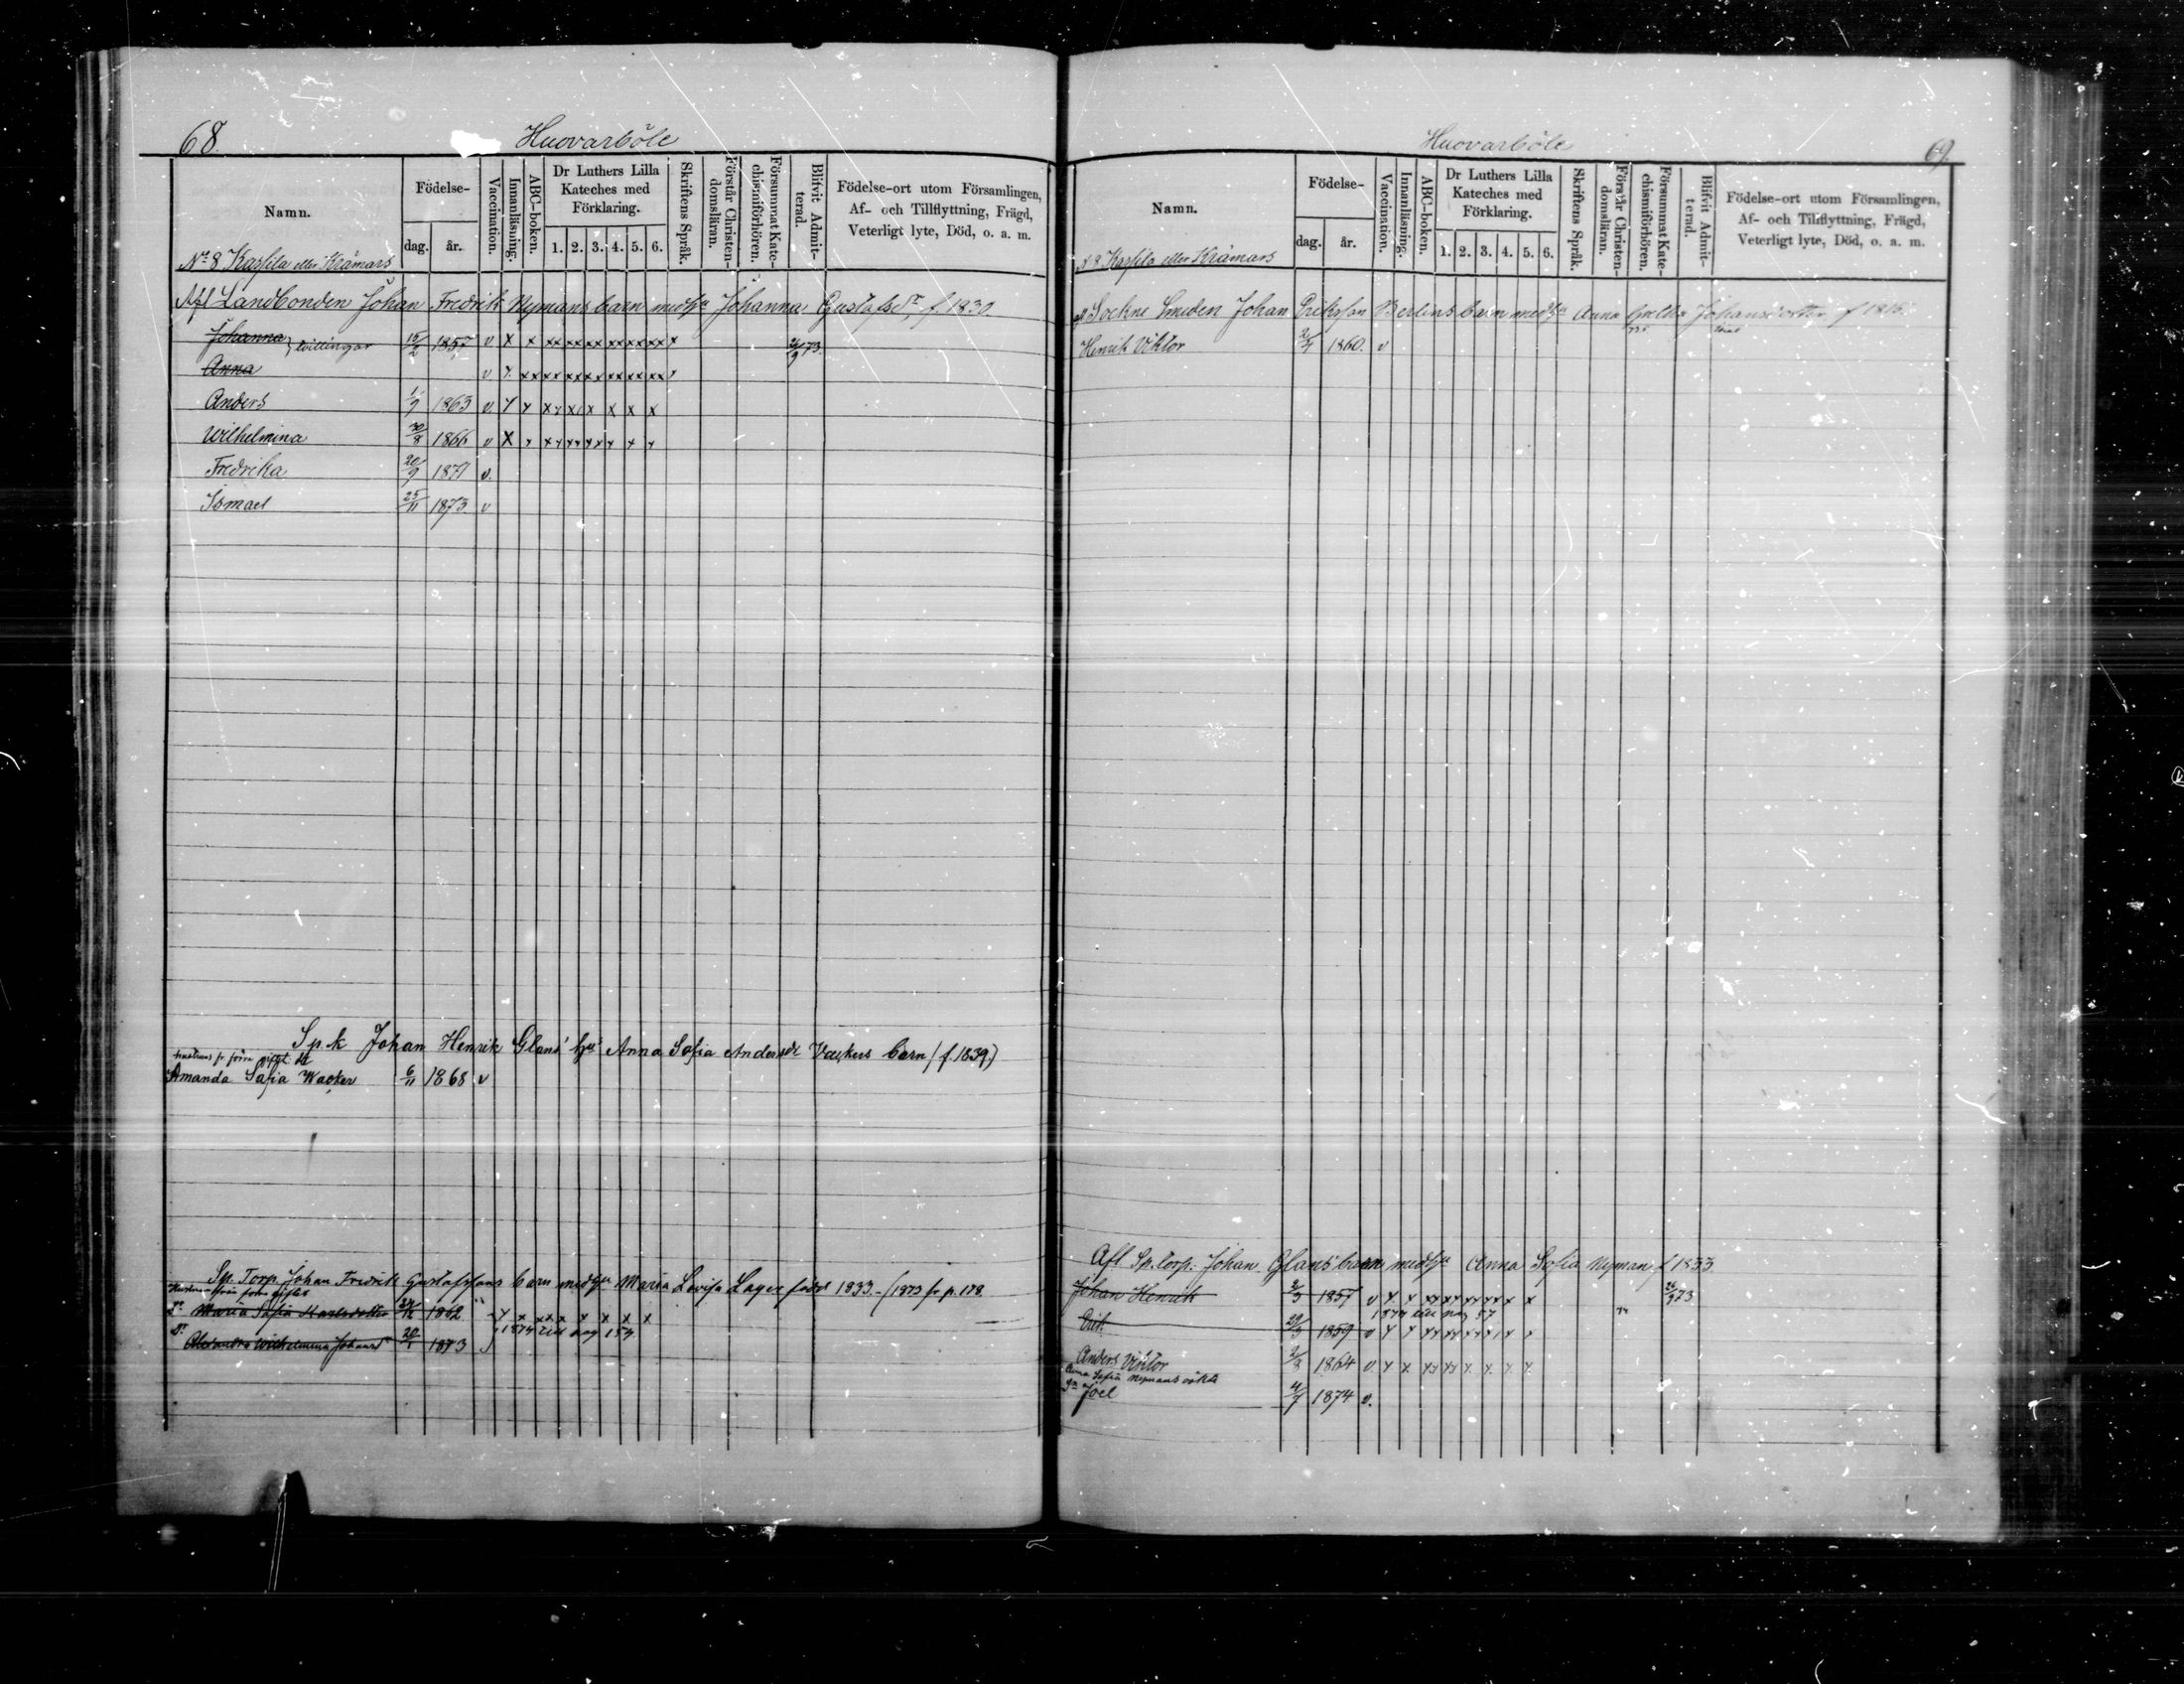 68.
Huovarböle
Namn.
Födelse-
dag.
år.
Vaccination.
Innanläsning.
ABC-boken.
Dr Luthers Lilla
Kateches med
Förklaring.
1. 2. 3. 4. 5. 6.
Skriftens Språk.
Förstår Christen-
domsläran.
Försummat Kate-
chismiförhören.
Blifvit Admit-
terad.
Födelse-ort utom Församlingen,
Af- och Tillflyttning, Frägd,
Veterligt lyte, Död, o. a. m.
No 8 Kassila eller Krämars
Afl Landbonden Johan Fredrik Nymans barn med Johanna Gustafsdr f. 1830
Johanna } tvillingar 15/2 1857 v x x xx xx xx xx xx xx x 2/9 73.
Anna v x xx xx xx xx xx xx xx x
Anders 1/9 1863 v x x xx xx x x x x
Wilhelmina 30/8 1866 v x x xx xx xx x x x
Fredrika 20/9 1871 v.
Ismael 25/11 1873. v
Sp.k Johan Henrik Glans' hu Anna Sofia Andersdr barn (f. 1839.)
hustruns fr förra gifte
Amanda Sofia Wacker 6/11 1868 v
Sp. Torp. Johan Fredrik Gustafssons barn med Maria Lovisa Lager född 1833. (1873 fr p. 178
Hustrun från förra giftes
Maria Sofia 1862
1874 till pag 154
Alexandra Wilhelmina Johansdr 20/1 1873
Huovarböle
69.
Namn.
Födelse-
dag.
år.
Vaccination.
Innanläsning.
ABC-boken.
Dr Luthers Lilla
Kateches med
Förklaring.
1. 2. 3. 4. 5. 6.
Skriftens Språk.
Förstår Christen-
domsläran.
Försummat Kate-
chismiförhören.
Blifvit Admit-
terad.
Födelse-ort utom Församlingen,
Af- och Tillflyttning, Frägd,
Veterligt lyte, Död, o. a. m.
N 8 Kassila eller Krämars
Sockne Smeden Johan Eriksson Berlins barn med Anna Greta Johansdotter f 1815
Henrik Viktor 1860. v
Afl Sp. torp. Johan Glans' barn med Anna Sofia Nyman f 1833
Johan Henrik 2/3 1857 v x x xx xx xx xx x x 73
1874 till pag 57
Erik 29/3 1859 v x x xx xx xx x x x
Anders Viktor 2/8 1864 v x x xx xx x x x x
Anna Sofia Nymans oäkta
Joel 4/7 1874 v.